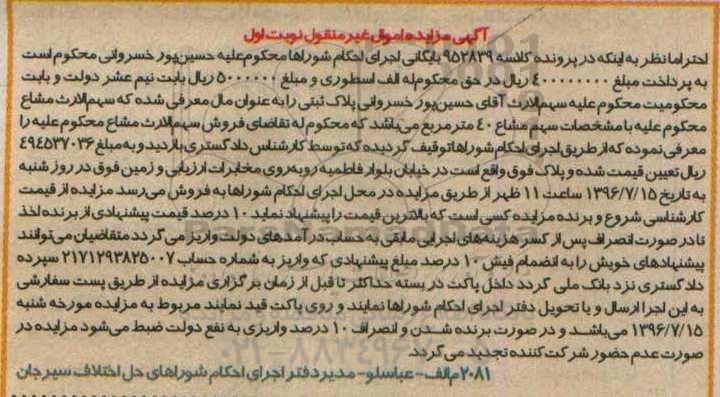 آگهی مزایده اموال غیر منقول نوبت اول
احتراما نظر به اینکه در پرونده کلاسه ۹۵۲۸۳۹ بایگانی اجرای احکام شوراها محکوم علیه حسین پور خسروانی محکوم است
به پرداخت مبلغ ۴۰۰۰۰۰۰۰۰ ریال در حق محکوم له الف اسطوری و مبلغ ۵۰۰۰۰۰۰ ریال بابت نیم عشر دولت و بابت
محکومیت محکوم علیه سهم الارث آقای حسین پور خسروانی پلاک ثبتی را به عنوان مال معرفی شده که سهم الارث مشاع
محکوم علیه با مشخصات سهم مشاع ۴۰ متر مربع می باشد که محکوم له تقاضای فروش سهم الارث مشاع محکوم علیه را
معرفی نموده که از طریق اجرای احکام شوراها توقیف گردیده که توسط کارشناس دادگستری بازدید و به مبلغ ۴۹۴۵۳۷۰۳۶
ریال تعیین قیمت شده و پلاک فوق واقع است در خیابان بلوار فاطمیه روبه روی مخابرات ارزیابی و زمین فوق در روز شنبه
به تاریخ ۱۳۹۶/۷/۱۵ ساعت ۱۱ ظهر از طریق مزایده در محل اجرای احکام شوراها به فروش می رسد مزایده از قیمت
کارشناسی شروع و برنده مزایده کسی است که بالاترین قیمت را پیشنهاد نماید ۱۰ درصد قیمت پیشنهادی از برنده اخذ
تا در صورت انصراف پس از کسر هزینه های اجرایی مابقی به حساب درآمدهای دولت واریز می گردد متقاضیان می توانند
پیشنهادهای خویش را به انضمام فیش ۱۰ درصد مبلغ پیشنهادی که واریز به شماره حساب ۲۱۷۱۲۹۳۸۲۵۰۰۷ سپرده
دادگستری نزد بانک ملی گردد داخل پاکت در بسته حداکثر تا قبل از زمان برگزاری مزایده از طریق پست سفارشی
به این اجرا ارسال و یا تحویل دفتر اجرای احکام شوراها نمایند و روی پاکت قید نمایند مربوط به مزایده مورخه شنبه
۱۳۹۶/۷/۱۵ می باشد و در صورت برنده شدن و انصراف ۱۰ درصد واریزی به نفع دولت ضبط می شود مزایده در
صورت عدم حضور شرکت کننده تجدید می گردد.
۲۰۸۱ م الف - عباسلو - مدیر دفتر اجرای احکام شوراهای حل اختلاف سیرجان